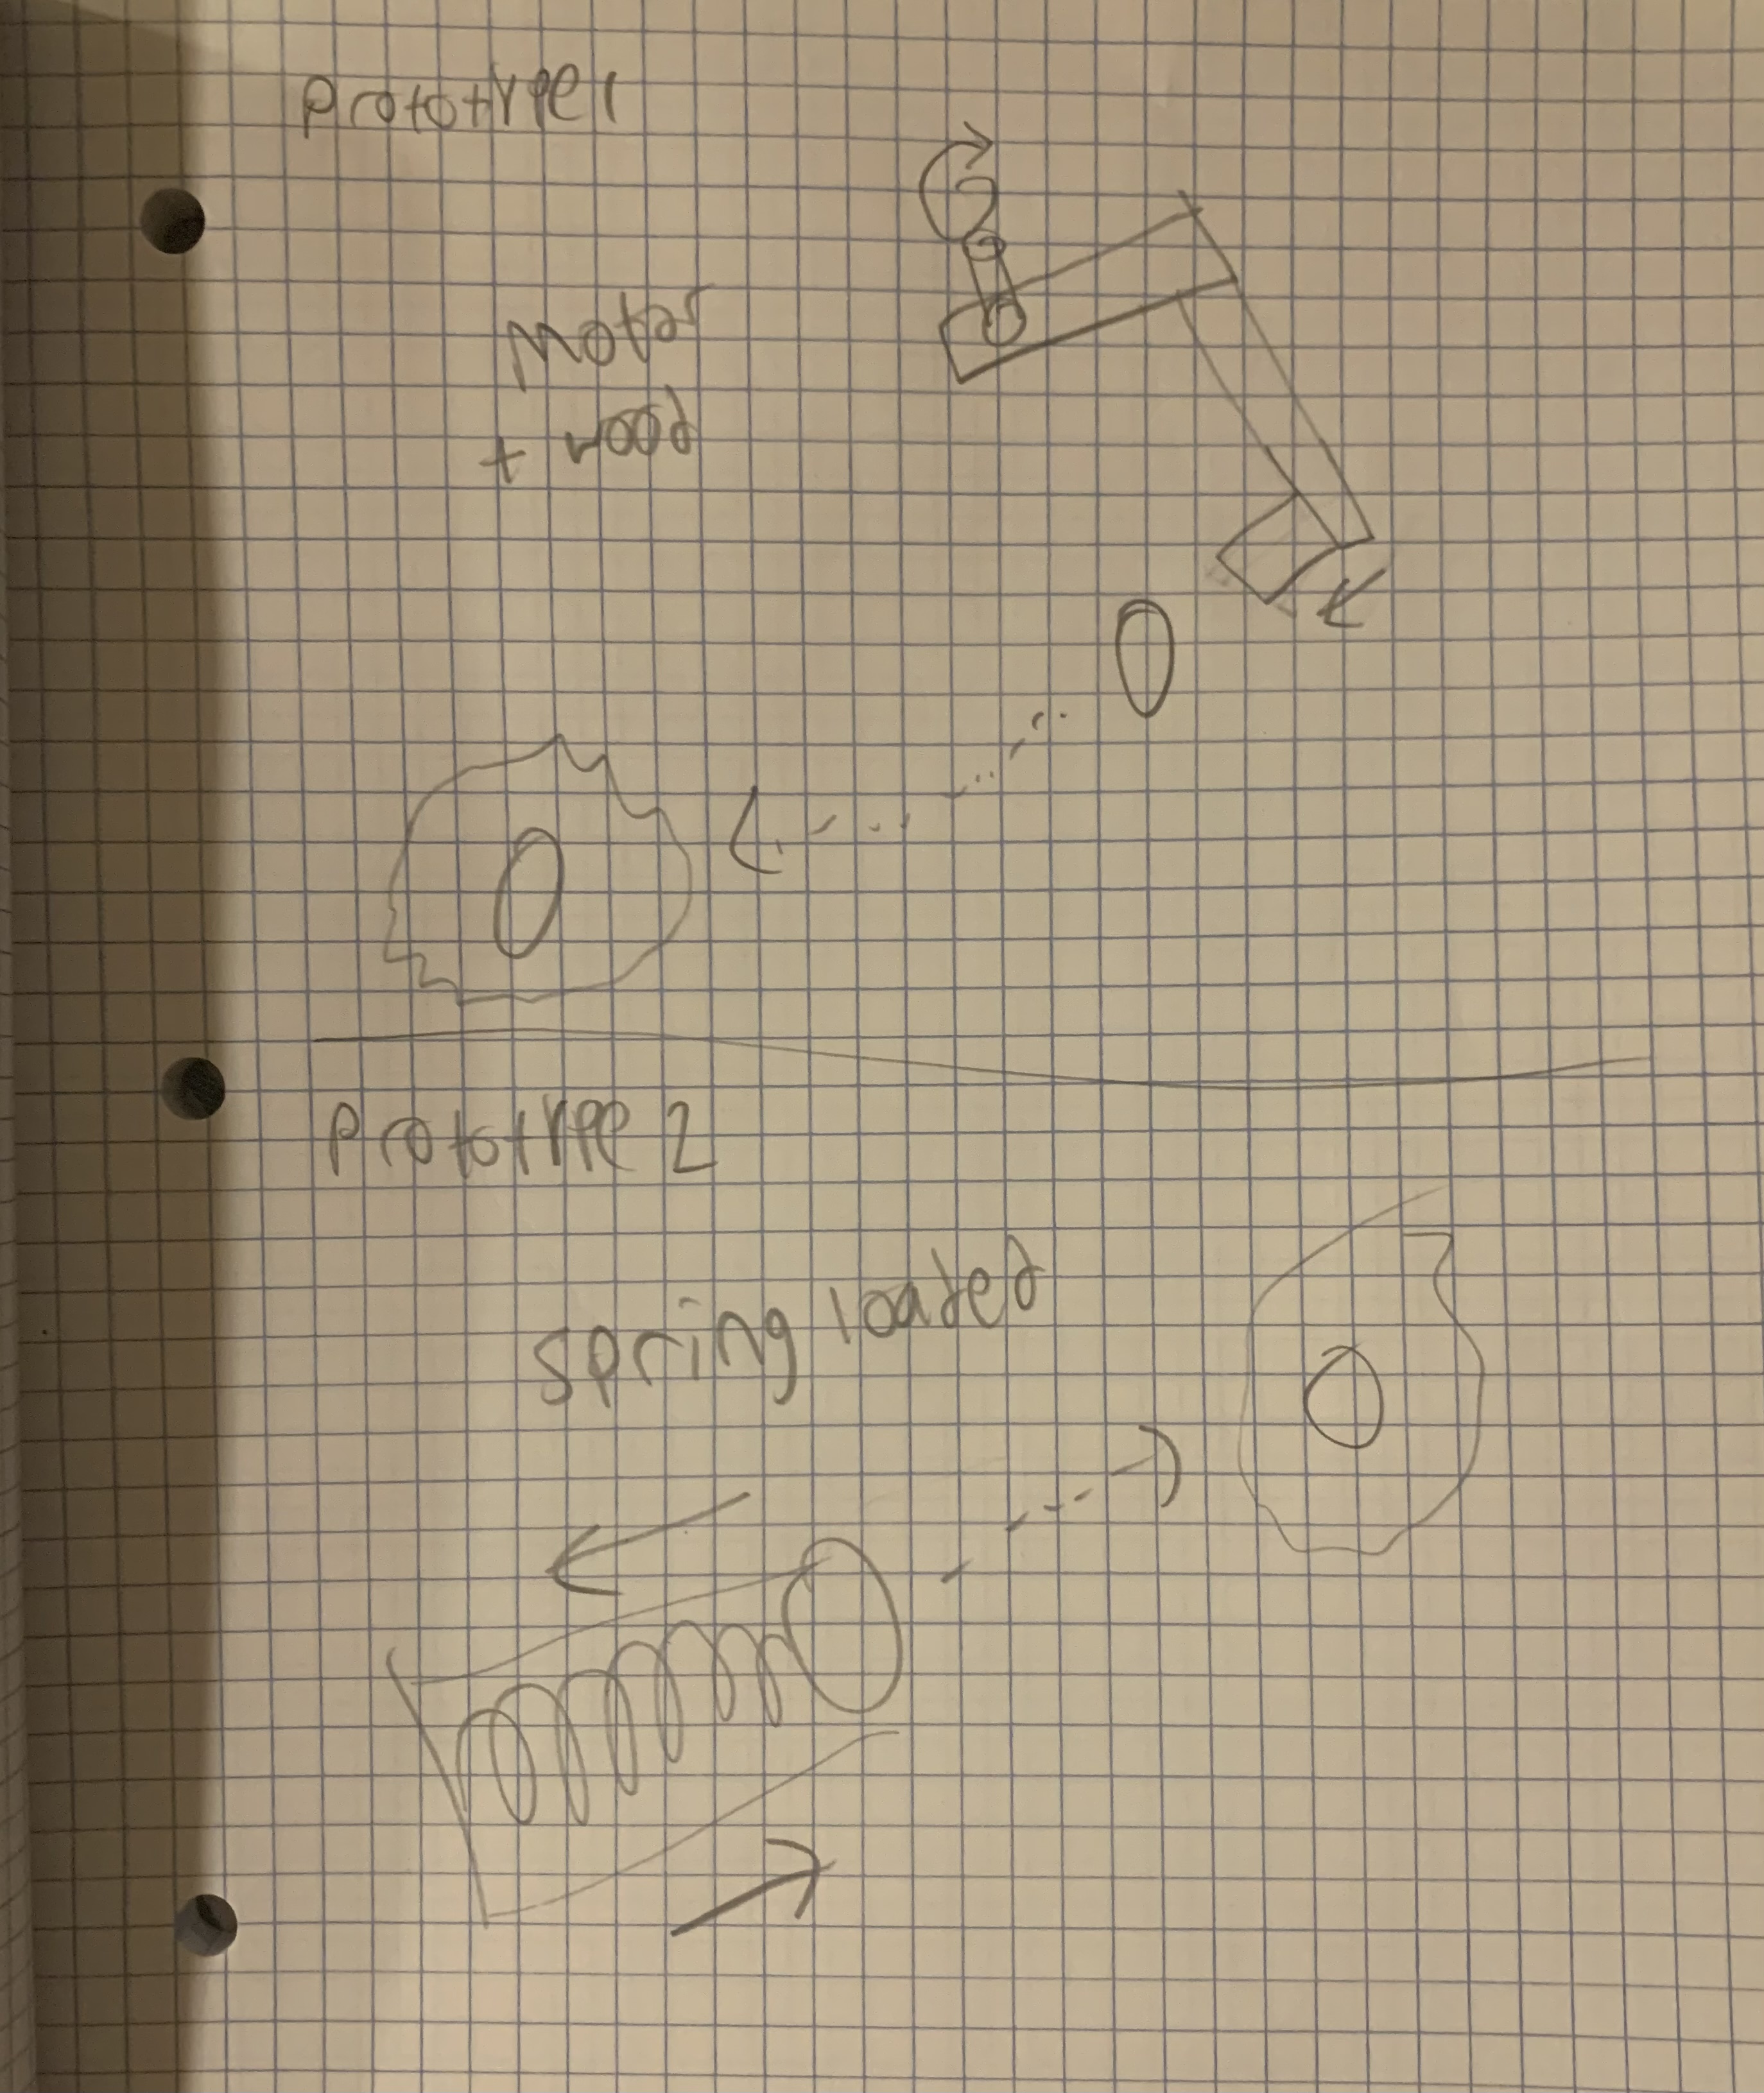 Prototype 1
Motor
+ wood
Prototype 2
spring loaded